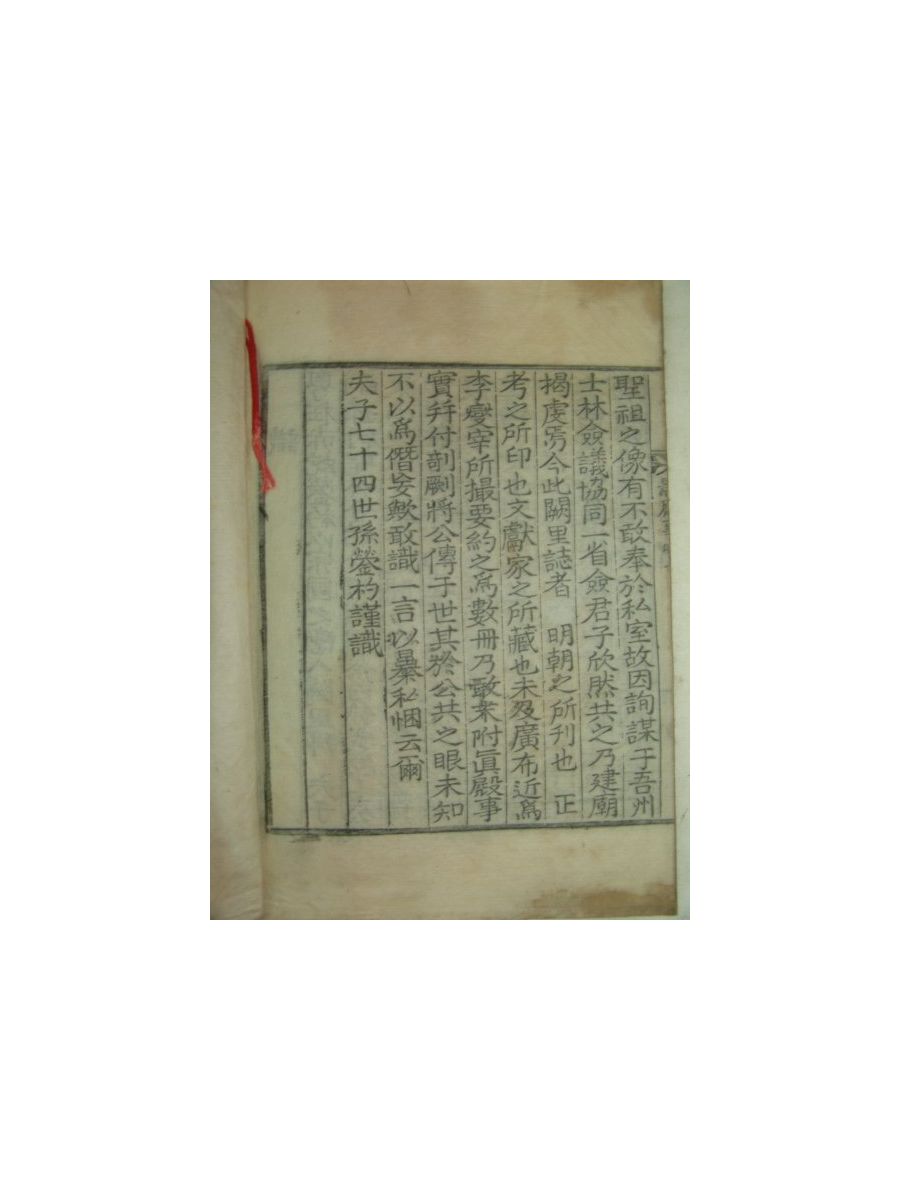 聖祖之像有不敢奉於私室故因詢謀于吾州
士林僉議協同一省僉君子欣然共之乃建廟
揭虔焉今此闕里誌者 明朝之所刊也 正
考之所印也文獻家之所藏也未及廣布近爲
李燮宰所撮要約之爲數冊乃敢來附眞殿事
實幷付剞劂將公傳于世其於公共之眼未知
不以爲僭妄歟敢識一言以纂私悃云爾
夫子七十四世孫瑩杓謹識